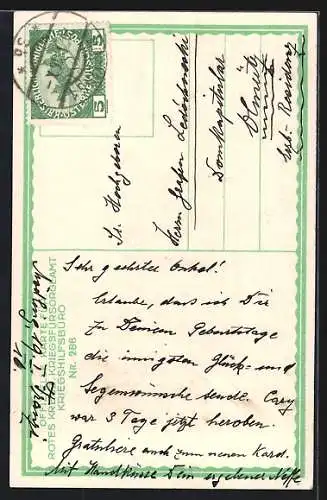 5
Sr. Hochgeboren
Herrn Grafen Ledóchowski
Domkapitular
Olmütz
Erzb. Residenz
OFFIZIELLE KARTE FÜR
ROTES KREUZ KRIEGSFÜRSORGEAMT
KRIEGSHILFSBÜRO
Nr. 286
Sehr geehrter Onkel!
Erlaube, dass ich Dir
zu Deinem Geburtstage
die innigsten Glück- und
Segenswünsche sende.
war 3 Tage jetzt heroben.
Gratuliere auch zum neuen Kard.
Mit Handküsse Dein ergebener Neffe